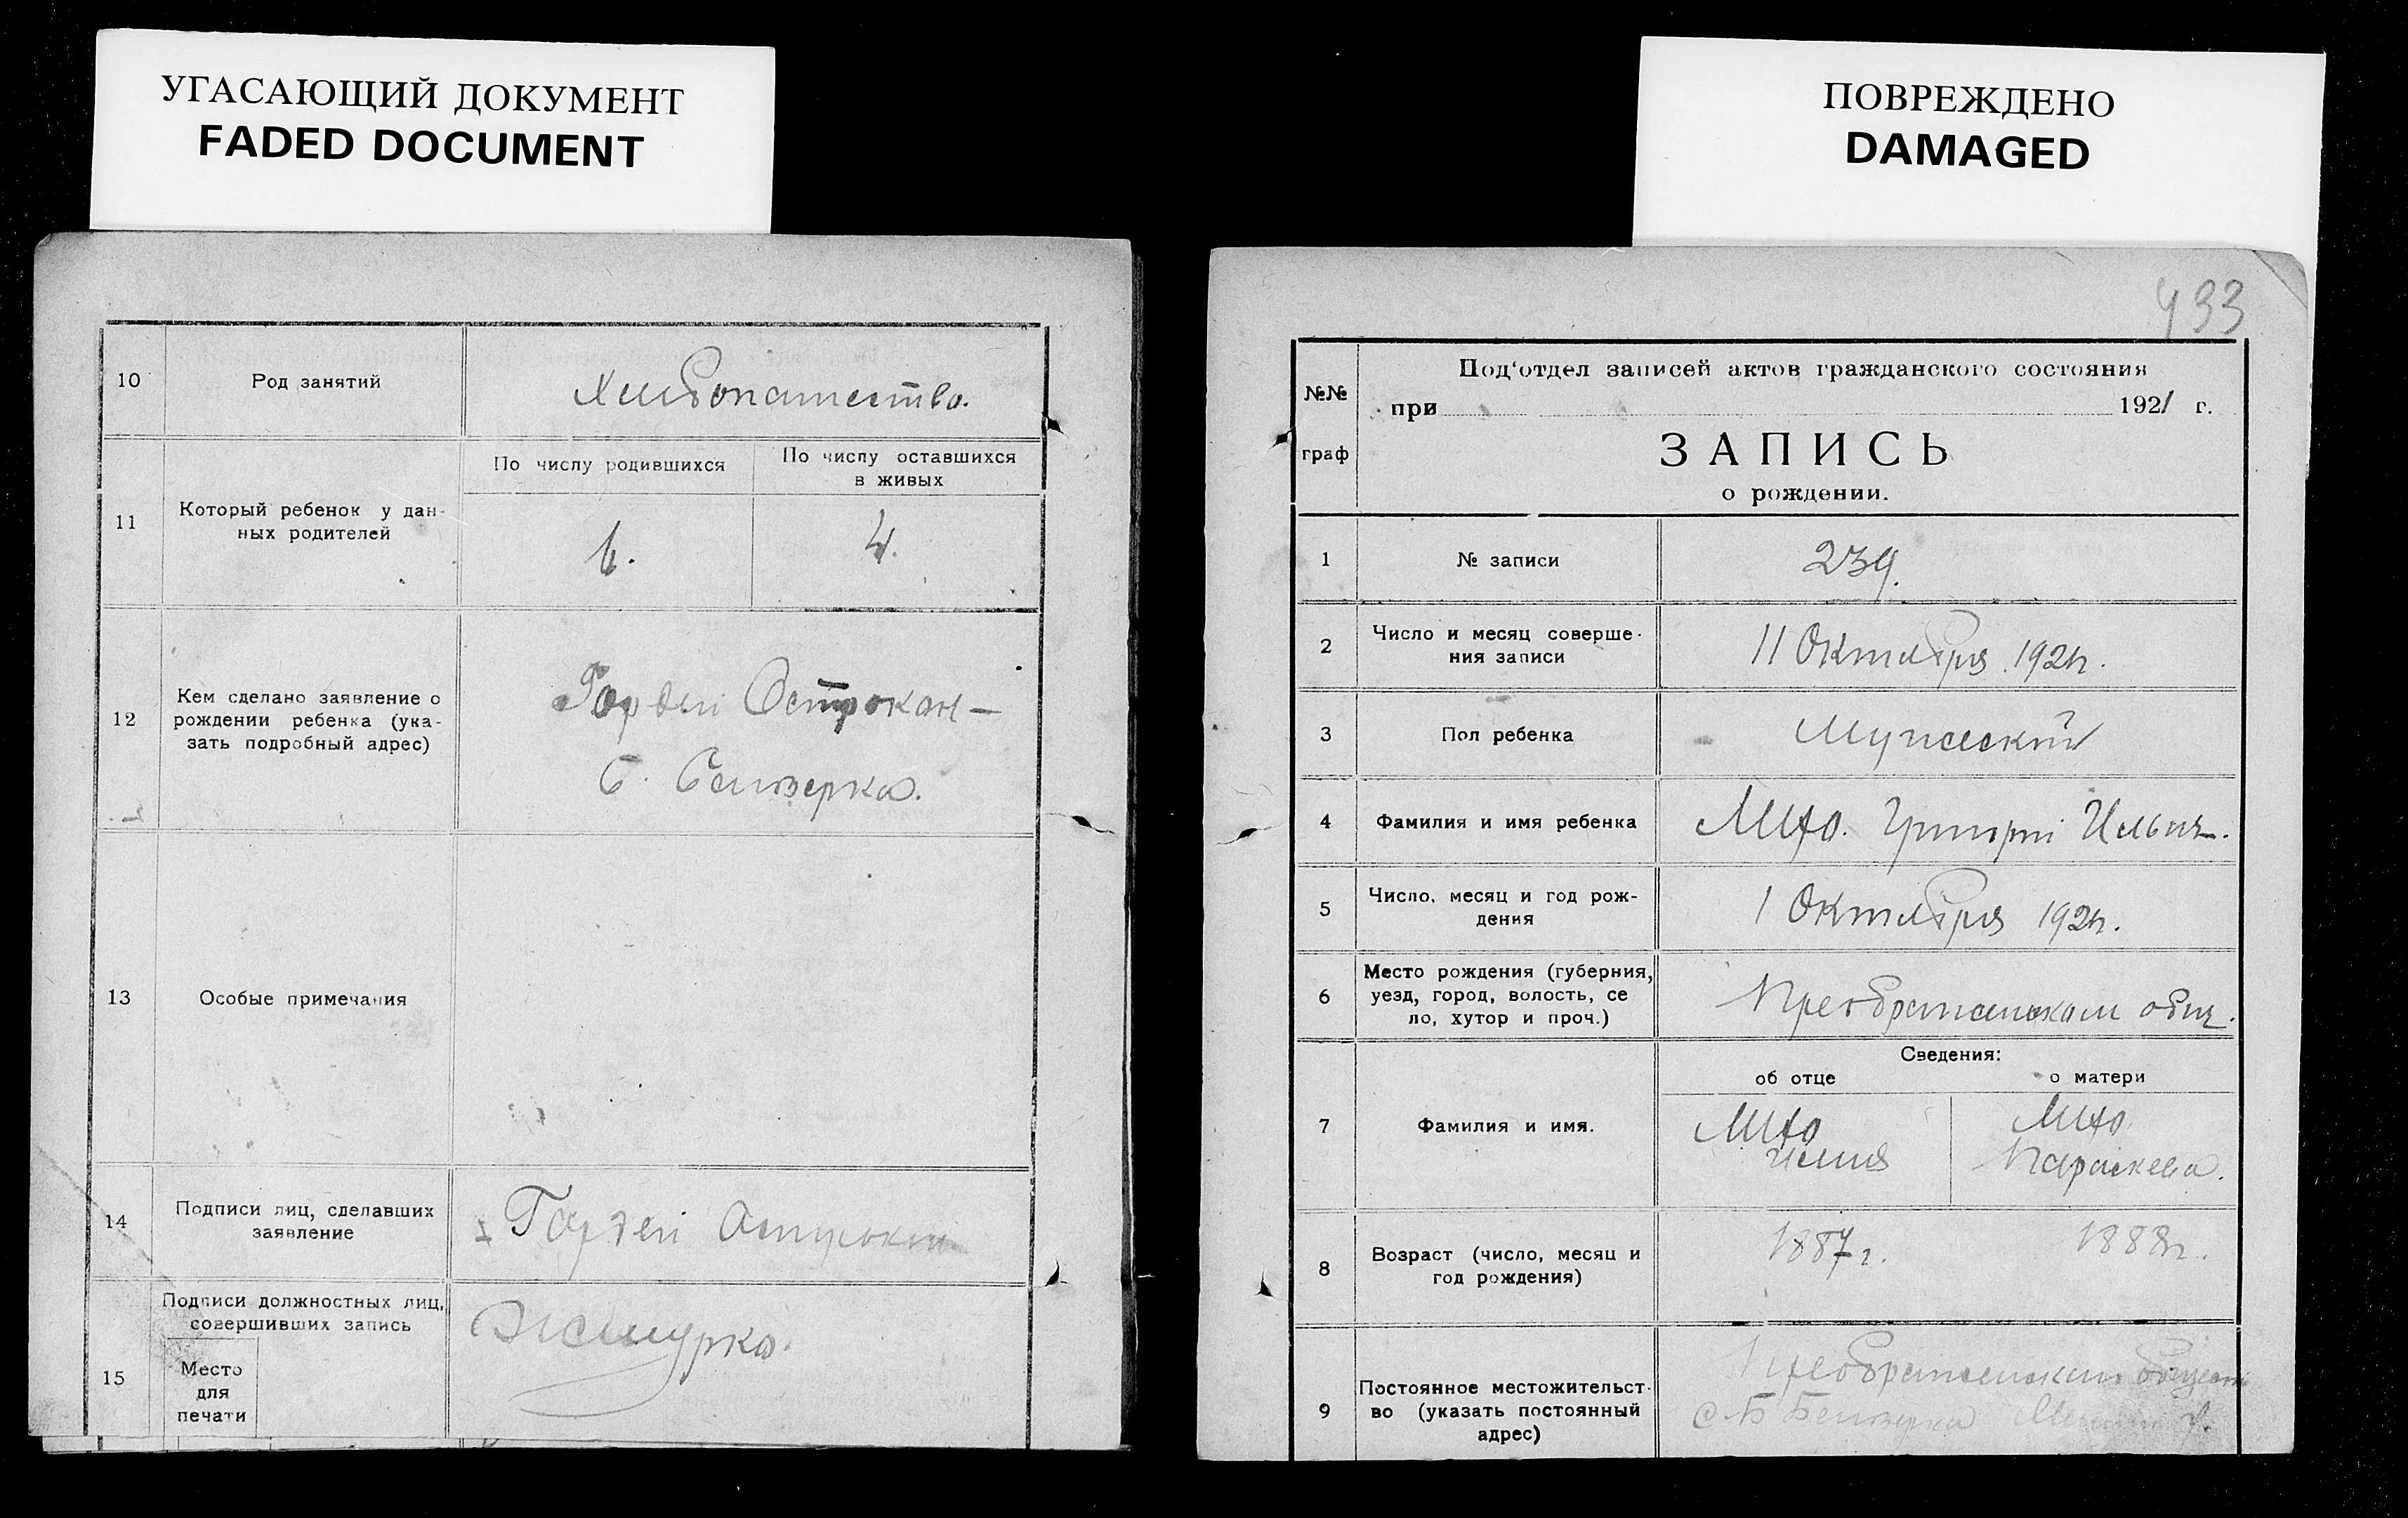 УГАСАЮЩИЙ ДОКУМЕНТ
FADED DOCUMENT
10
Род занятий
Хлибопашество.
11
Который ребенок у дан-
ных родителей
По числу родившихся
По числу оставшихся
в живых
6.
4.
12
Кем сделано заявление о
рождении ребенка (ука-
зать подробный адрес)
Гордей Острокан-
Б. Билозерка.
13
Особые примечания
14
Подписи лиц, сделавших
заявление
Гордей
15
Подписи должностных лиц,
совершивших запись
Место
для
печати
ПОВРЕЖДЕНО
DAMAGED
433
№№
граф
Под'отдел записей актов гражданского состояния
при 1921 г.
ЗАПИСЬ
о рождении.
1
№ записи
239.
2
Число и месяц соверше-
ния записи
11 Октября 1921г.
3
Пол ребенка
Мужеский
4
Фамилия и имя ребенка
Григорий Ильич.
5
Число, месяц и год рож-
дения
1 Октября 1921г.
6
Место рождения (губерния,
уезд, город, волость, се
ло, хутор и проч.)
Преображенском общ.
Сведения:
об отце
о матери
7
Фамилия и имя.
Илия
Параскева.
8
Возраст (число, месяц и
год рождения)
1887г.
1888г.
9
Постоянное местожительст-
во (указать постоянный
адрес)
с. Б Белозерка